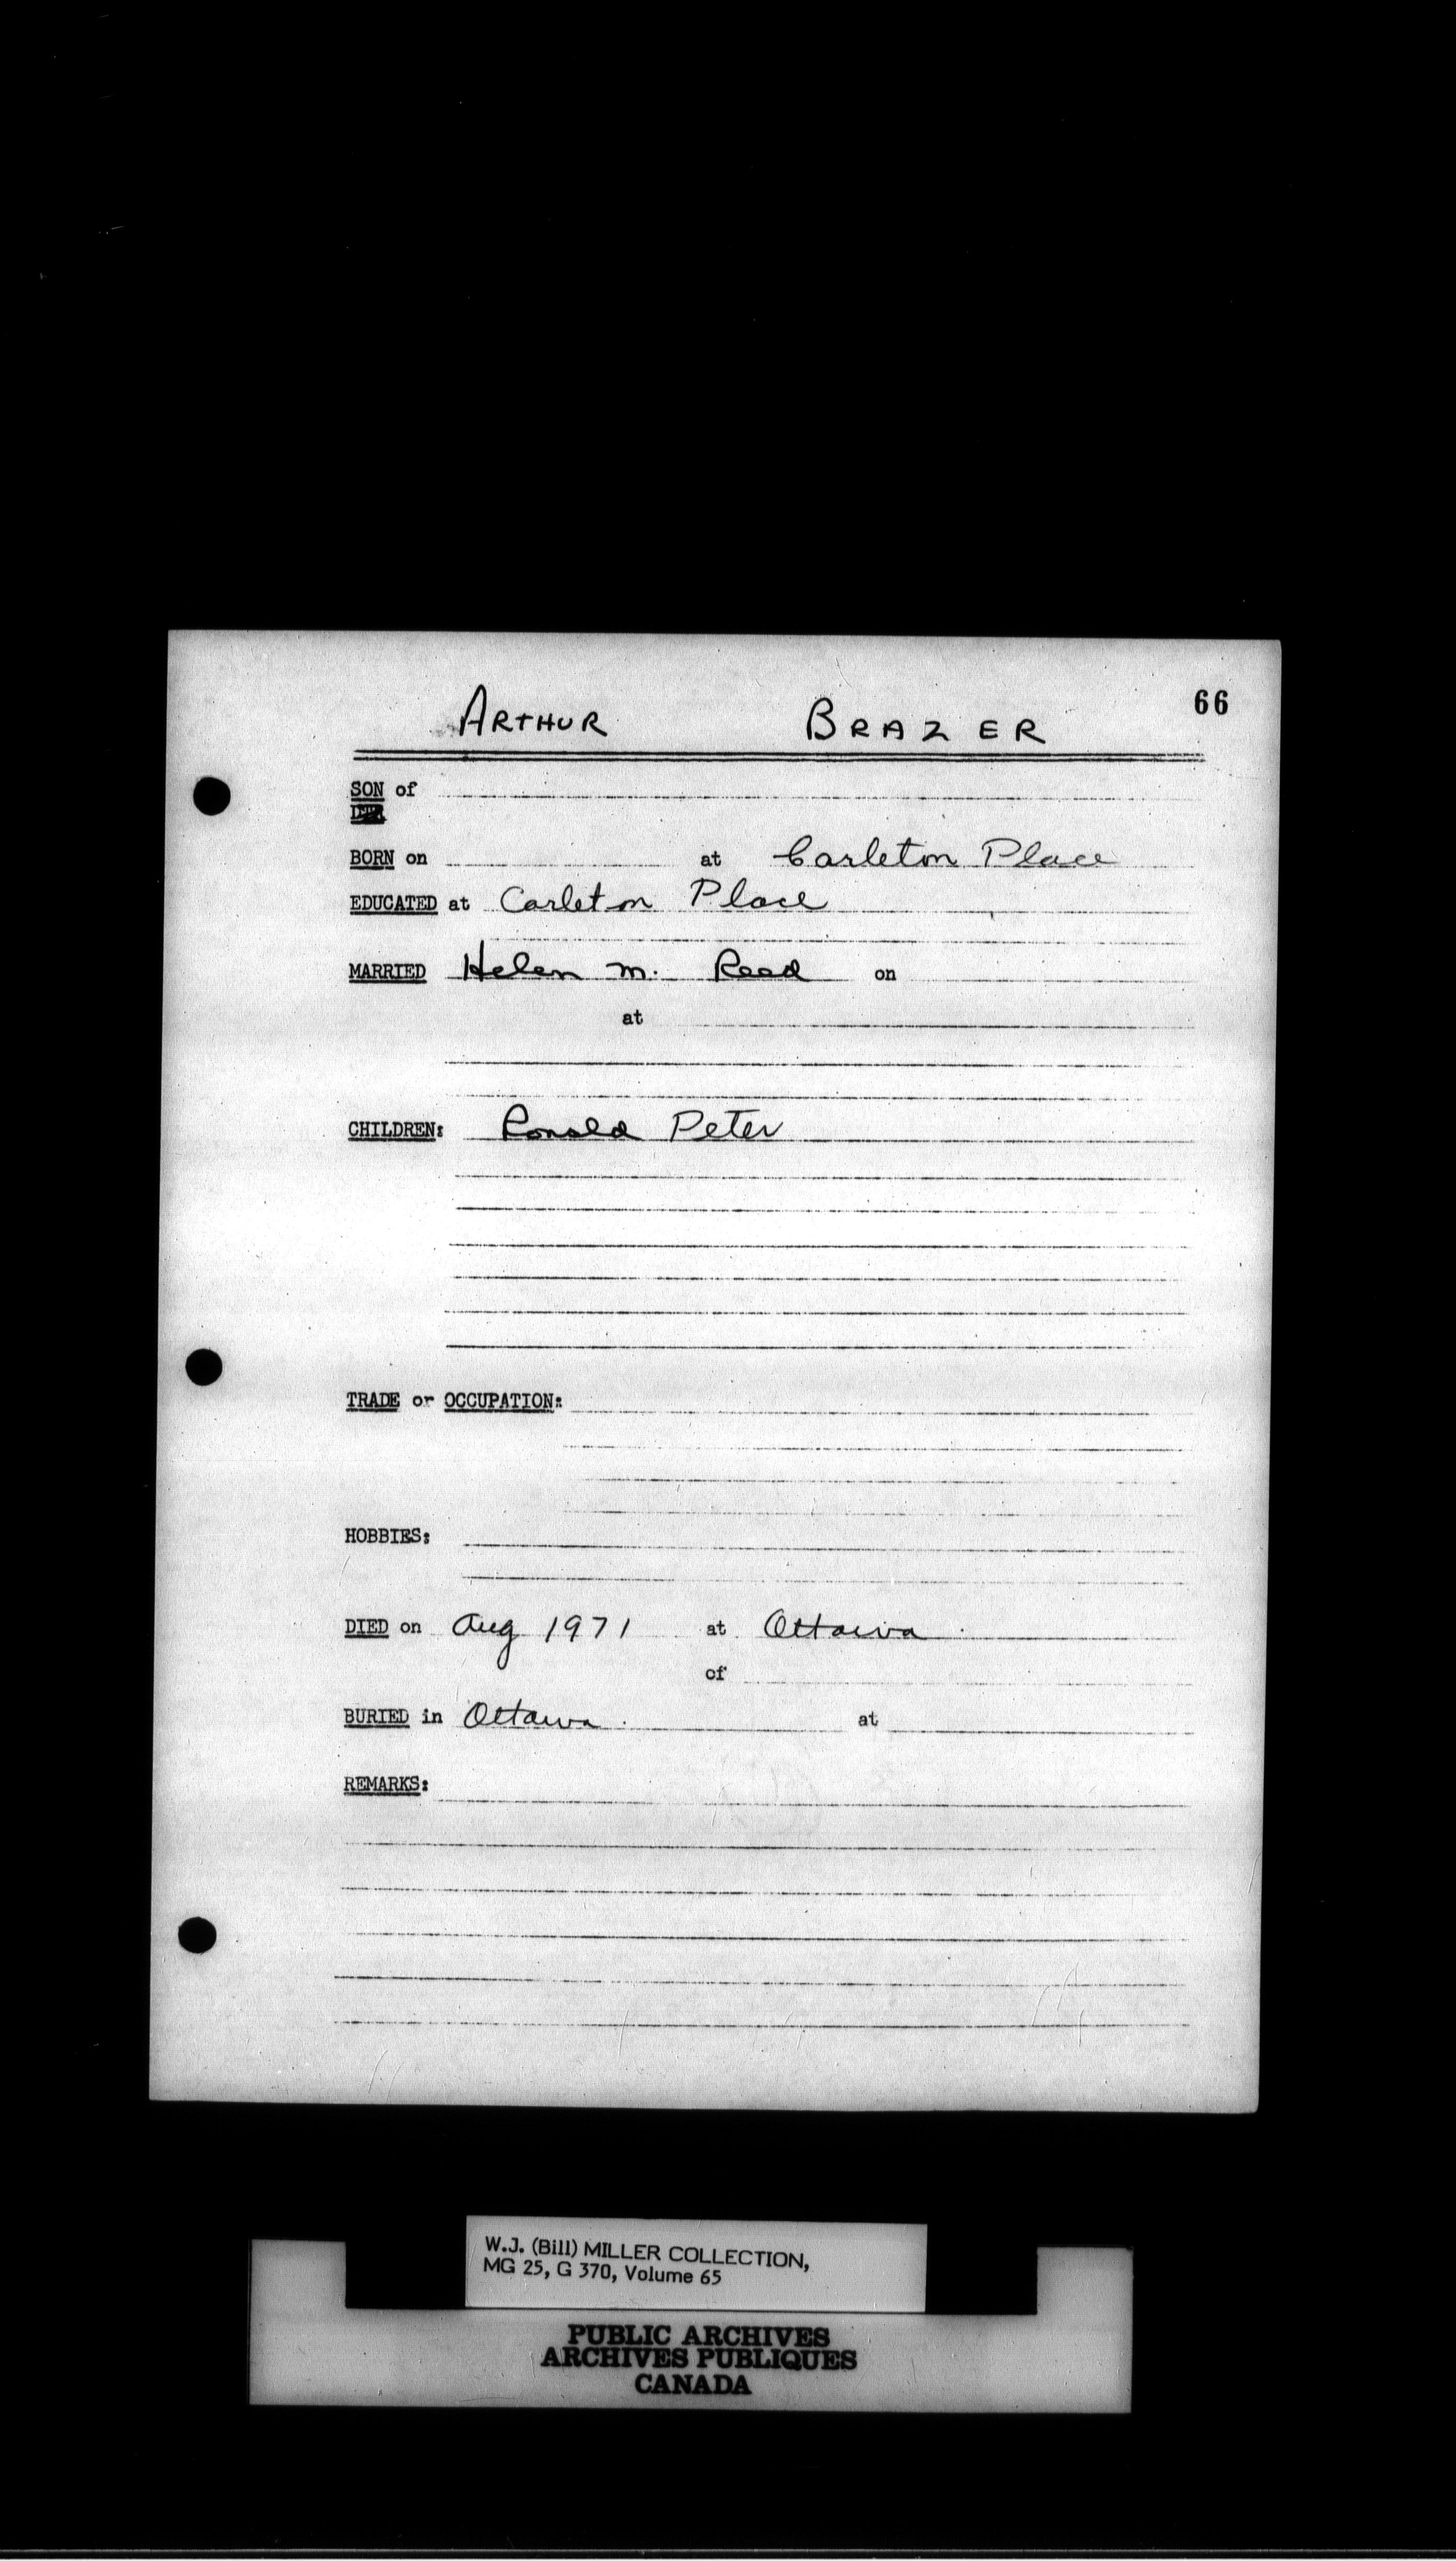 66
ARTHUR BRAZER
SON of
BORN on at Carleton Place
EDUCATED at Carleton Place
MARRIED Helen M. Reed on
at
CHILDREN: Ronald Peter
TRADE or OCCUPATION:
HOBBIES:
DIED on Aug 1971 at Ottawa.
of
BURIED in Ottawa. at
REMARKS:
W.J. (Bill) MILLER COLLECTION,
MG 25, G 370, Volume 65
PUBLIC ARCHIVES
ARCHIVES PUBLIQUES
CANADA